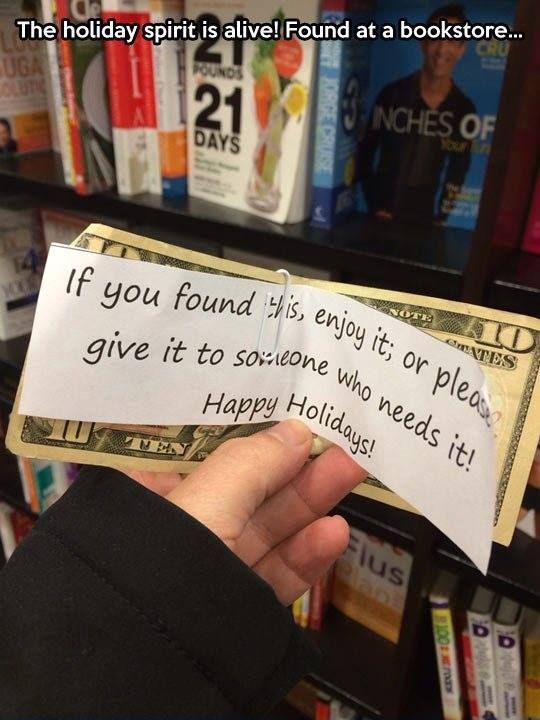 The holiday spirit is alive! Found at a bookstore...
21
POUNDS
21
DAYS
JORGE CRUISE
3
INCHES OF
Your
CRU
UGA
10
NOTE
10
STATES
If you found this, enjoy it; or please
give it to someone who needs it!
Happy Holidays!
10
TEN
Plans